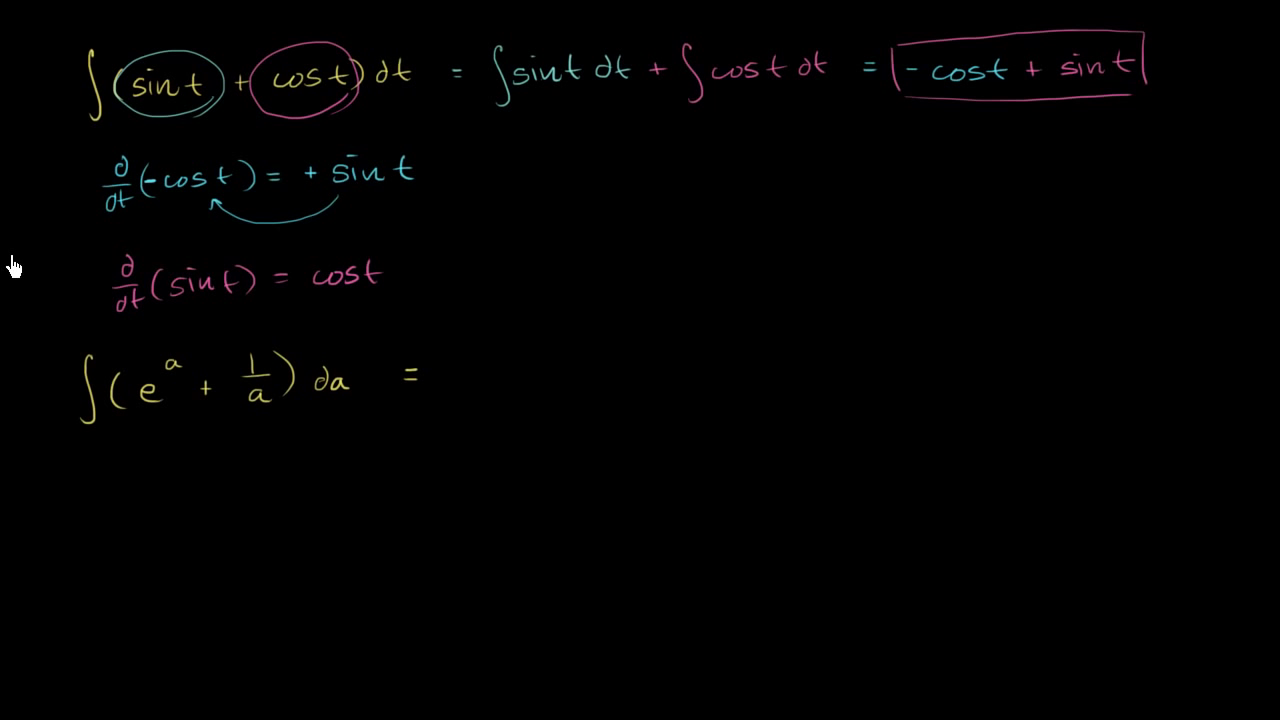 ∫(sin t + cos t) dt = ∫sin t dt + ∫cos t dt = -cos t + sin t
d/dt(-cos t) = + sin t
d/dt(sin t) = cos t
∫(e^a + 1/a) da =